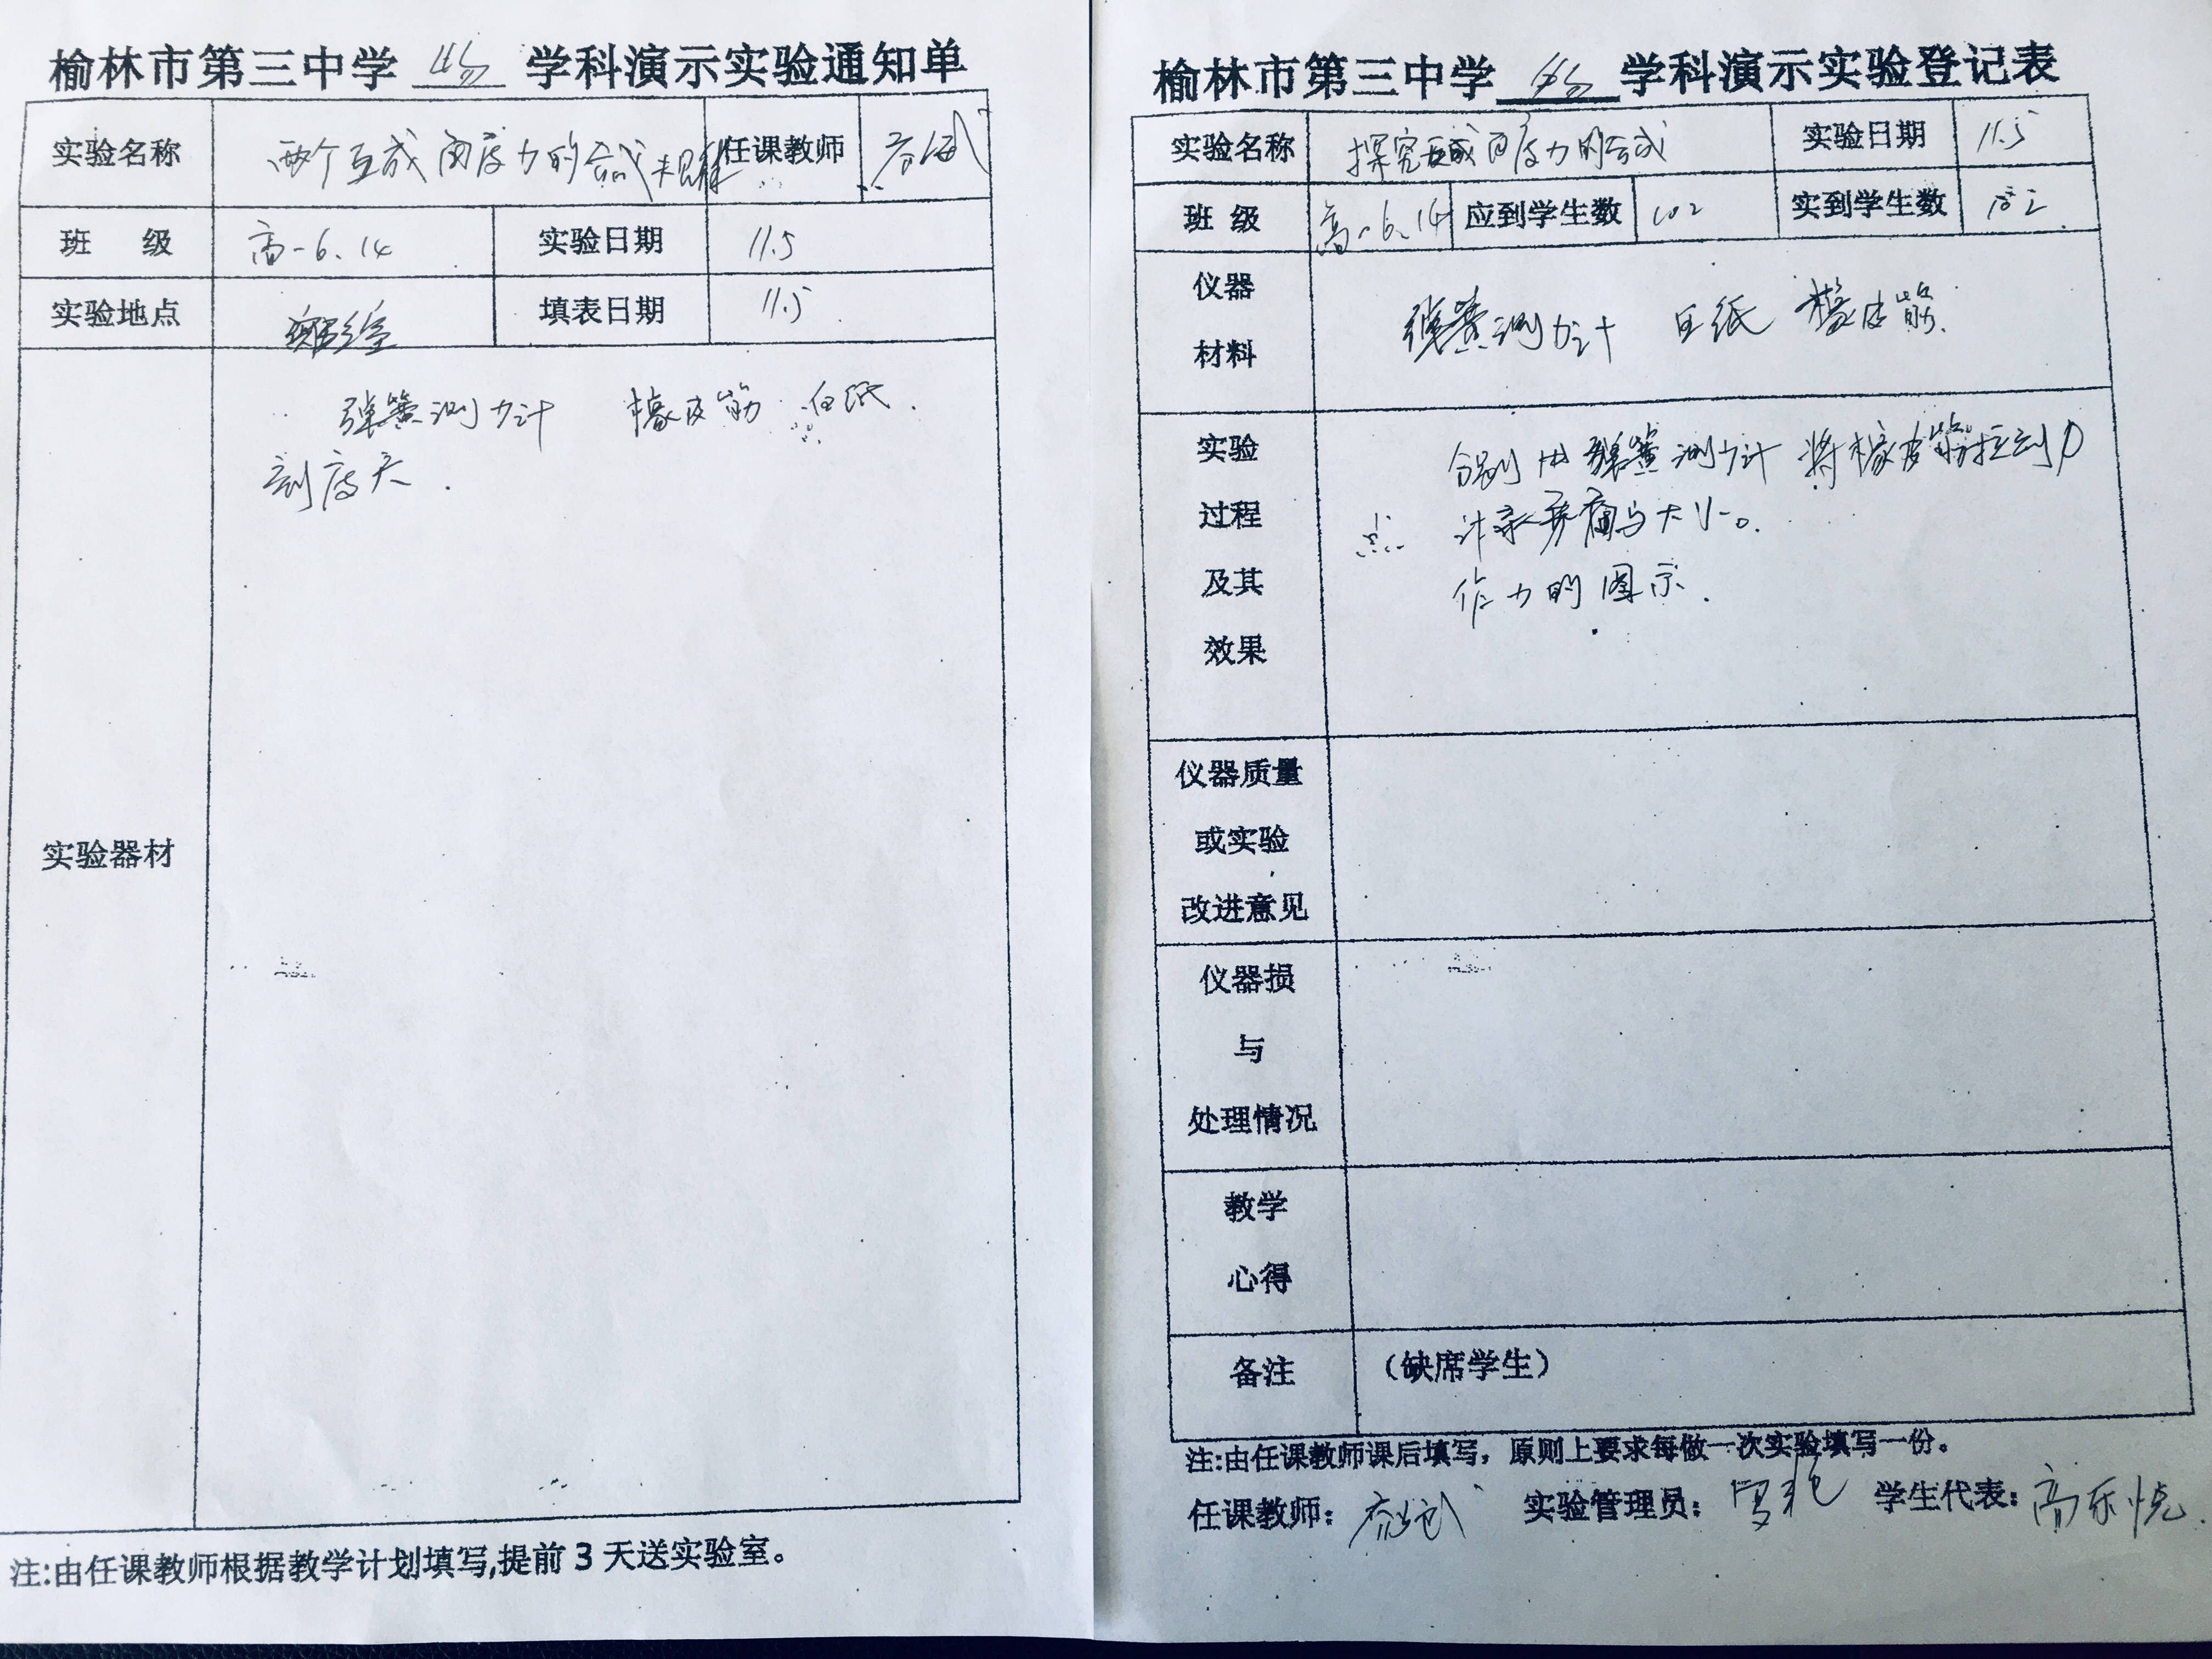 榆林市第三中学 物 学科演示实验通知单
实验名称 两个互成角度力的合成规律 任课教师
班 级 高一6.14 实验日期 11.5
实验地点 实验室 填表日期 11.5
弹簧测力计 橡皮筋 白纸.
刻度尺.
实验器材
注:由任课教师根据教学计划填写,提前3天送实验室。
榆林市第三中学 物 学科演示实验登记表
实验名称 探究互成角度力的合成 实验日期 11.5
班 级 高一6.14 应到学生数 102 实到学生数 102
仪器
材料
弹簧测力计 白纸 橡皮筋.
实验
过程
及其
效果
分别用弹簧测力计将橡皮筋拉到O
点 记录方向与大小。
作力的图示.
仪器质量
或实验
改进意见
仪器损
与
处理情况
教学
心得
备注 （缺席学生）
注:由任课教师课后填写，原则上要求每做一次实验填写一份。
任课教师: 实验管理员: 学生代表: 高乐悦.